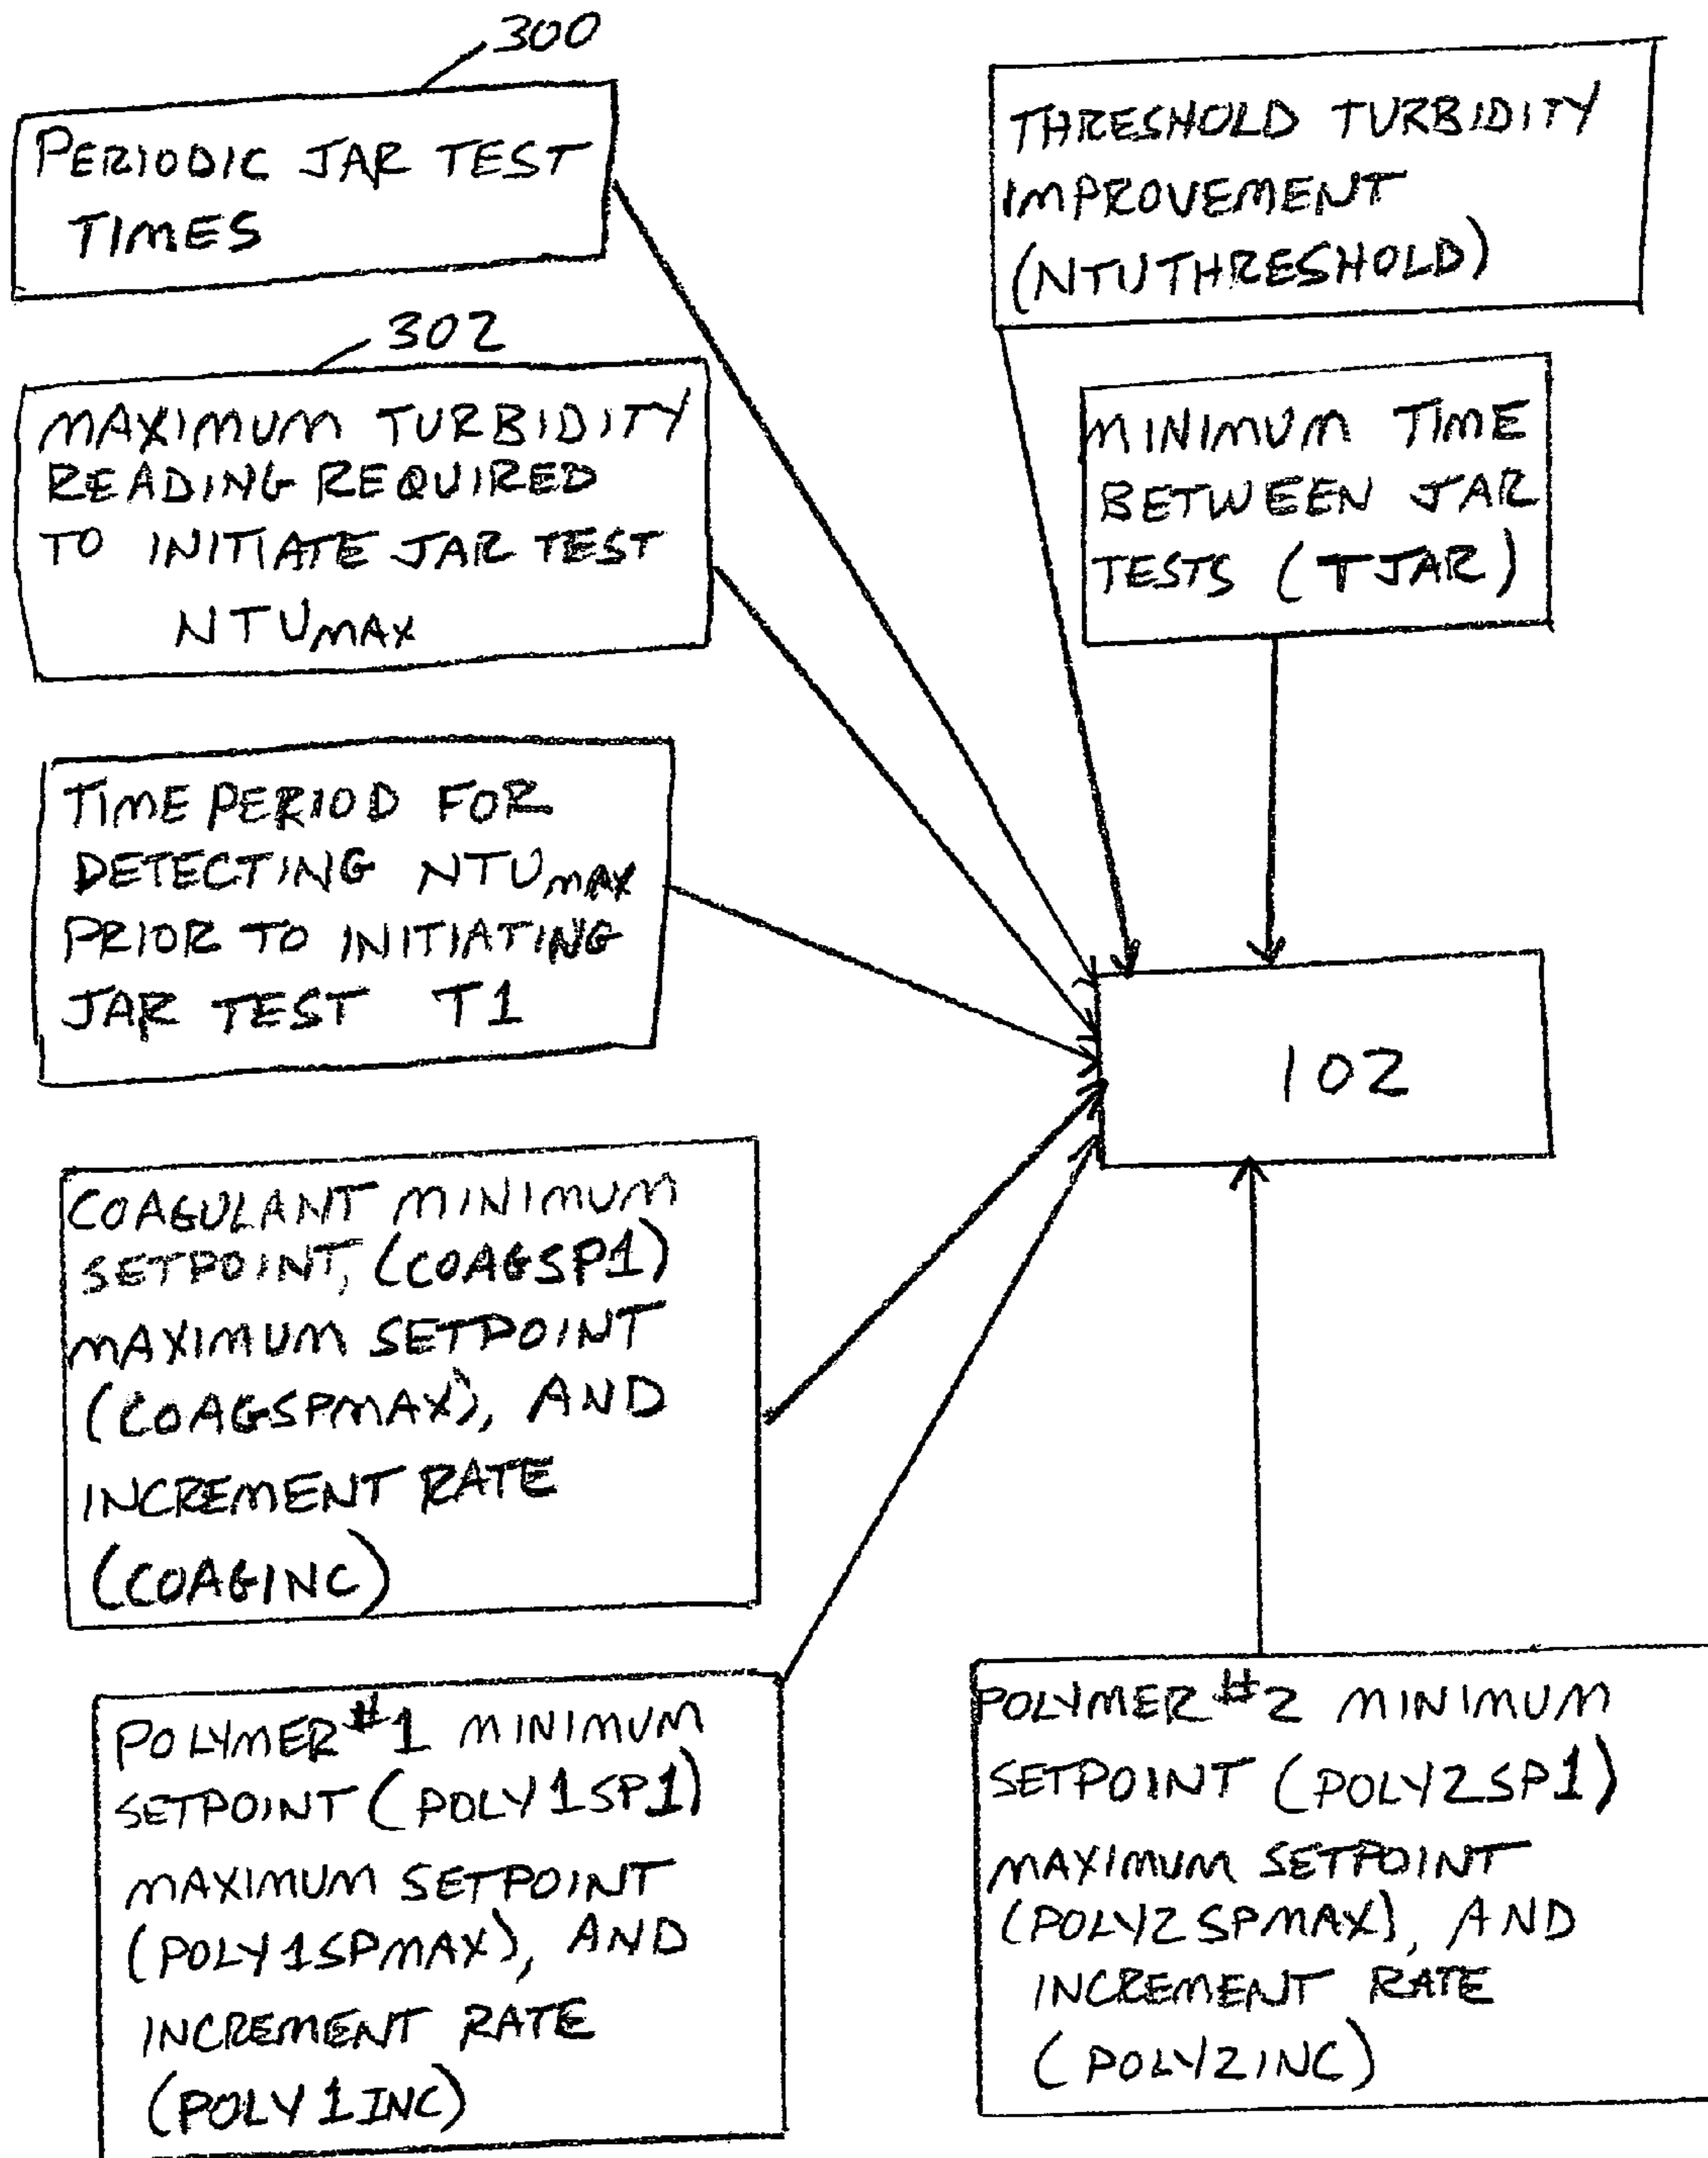 300
PERIODIC JAR TEST
TIMES
302
MAXIMUM TURBIDITY
READING REQUIRED
TO INITIATE JAR TEST
NTUMAX
TIME PERIOD FOR
DETECTING NTUMAX
PRIOR TO INITIATING
JAR TEST T1
COAGULANT MINIMUM
SETPOINT, (COAGSP1)
MAXIMUM SETPOINT
(COAGSPMAX), AND
INCREMENT RATE
(COAGINC)
POLYMER #1 MINIMUM
SETPOINT (POLY1SP1)
MAXIMUM SETPOINT
(POLY1SPMAX), AND
INCREMENT RATE
(POLY1INC)
THRESHOLD TURBIDITY
IMPROVEMENT
(NTUTHRESHOLD)
MINIMUM TIME
BETWEEN JAR
TESTS (TJAR)
102
POLYMER #2 MINIMUM
SETPOINT (POLY2SP1)
MAXIMUM SETPOINT
(POLY2SPMAX), AND
INCREMENT RATE
(POLY2INC)